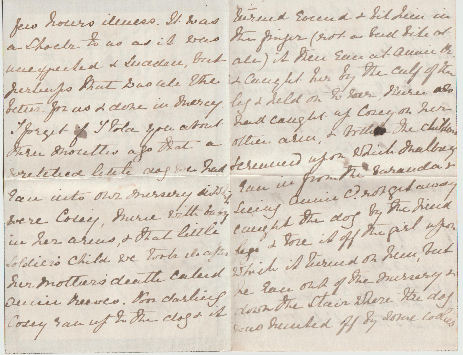 few hours illness. It was
a shock to us as it was
unexpected & sudden, but
perhaps that was all the
better for us & done in mercy.
I forget if I told you about
three months ago that a
wretched little dog had
ran into our nursery
were Cosey, nurse with baby
in her arms, & that little
soldier's child we took after
her mothers death called
Annie Reeves. Poor darling
Cosey ran up to the dog & it
turned round & bit him in
the finger (not a bad bite at
all) it then ran at Annie R.
& caught her by the calf of the
leg & held on to her. Nurse
had caught up Cosey on her
other arm, & the children
screamed upon which
ran in from the Verandah
seeing Annie get away
caught the dog by the hind
legs & tore it off the girl upon
which it turned on him, but
he ran out of the nursery &
down the stair where the dog
was hunted off by some